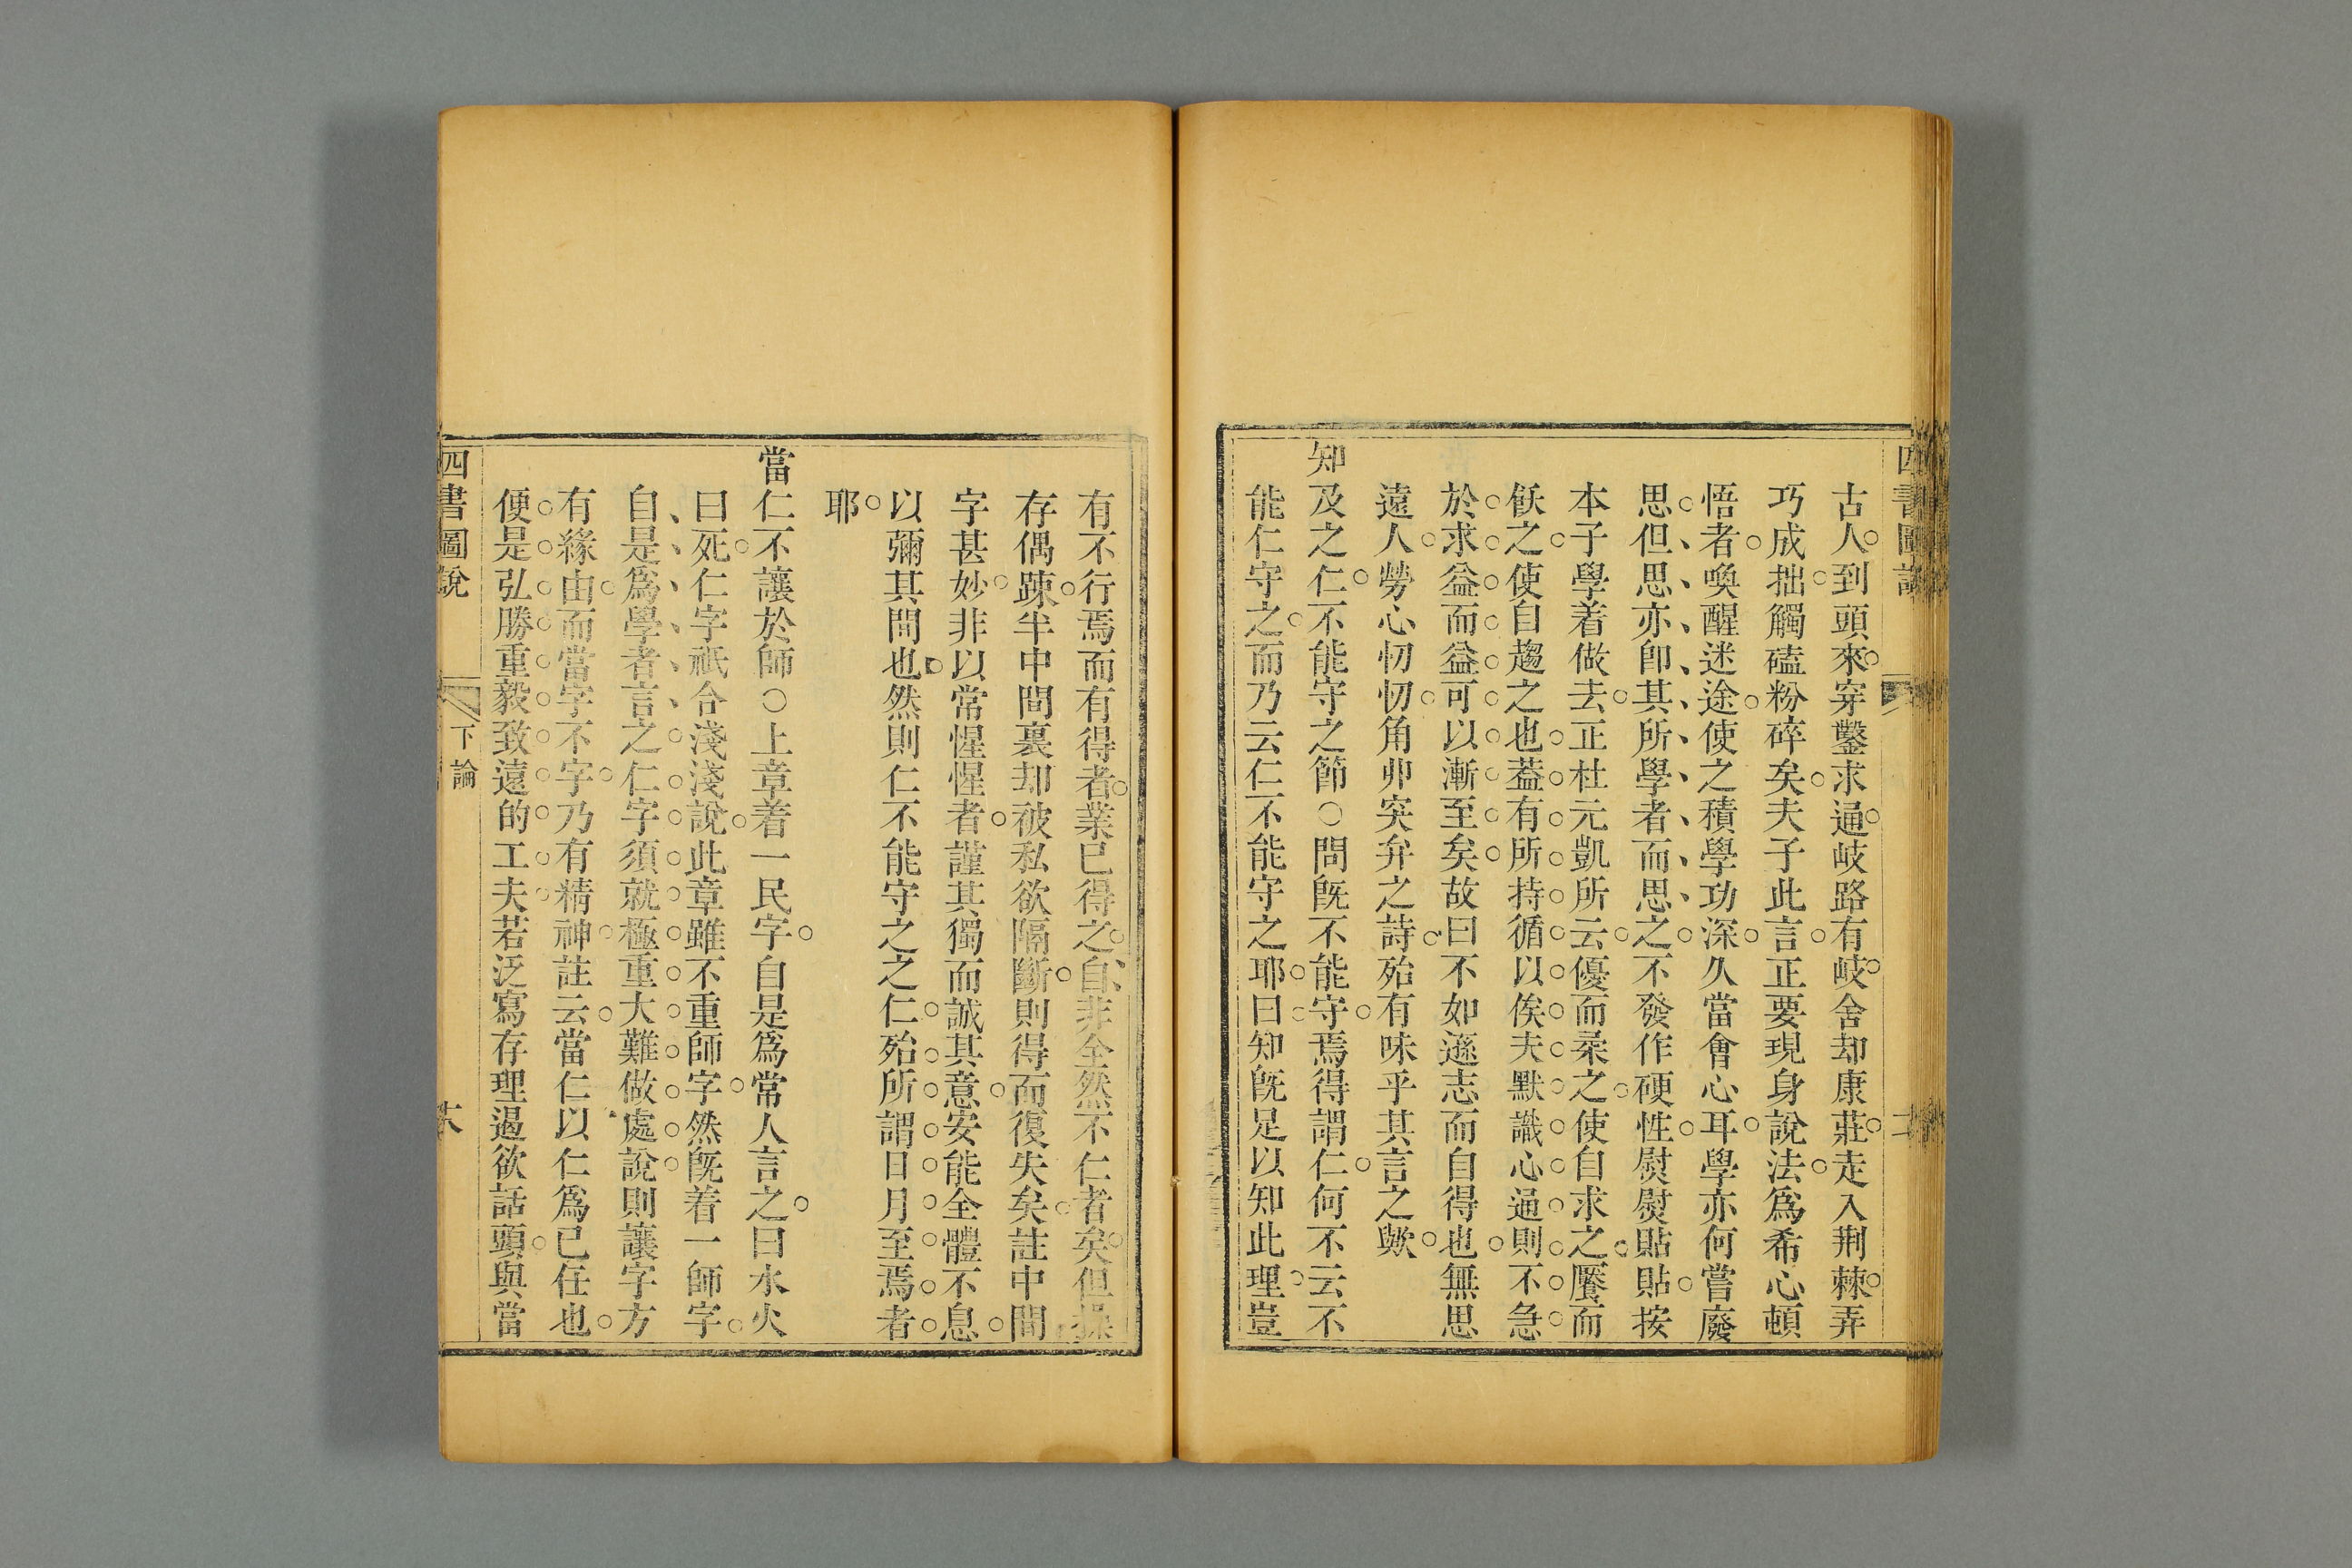 古人到頭來穿鑿求通岐路有岐舍却康莊走入荆棘弄
巧成拙觸磕粉碎矣夫子此言正要現身說法爲希心頓
悟者喚醒迷途使之積學功深久當會心耳學亦何嘗廢
思但思亦卽其所學者而思之不發作硬性慰慰貼貼按
本子學着做去正杜元凱所云優而柔之使自求之饜而
飫之使自趨之也葢有所持循以俟夫默識心通則不急
於求益而益可以漸至矣故曰不如遜志而自得也無思
遠人勞心忉忉角丱突弁之詩殆有味乎其言之歟
知及之仁不能守之節○問旣不能守焉得謂仁何不云不
能仁守之而乃云仁不能守之耶曰知旣足以知此理豈
有不行焉而有得者業已得之自非全然不仁者矣但操
存偶踈半中間裏却被私欲隔斷則得而復失矣註中間
字甚妙非以常惺惺者謹其獨而誠其意安能全體不息
以彌其間也然則仁不能守之之仁殆所謂日月至焉者
耶
當仁不讓於師○上章着一民字自是爲常人言之曰水火
曰死仁字祇合淺淺說此章雖不重師字然旣着一師字
自是爲學者言之仁字須就極重大難做處說則讓字方
有緣由而當字不字乃有精神註云當仁以仁爲己任也
便是弘勝重毅致遠的工夫若泛寫存理遏欲話頭與當
四書圖說 下論